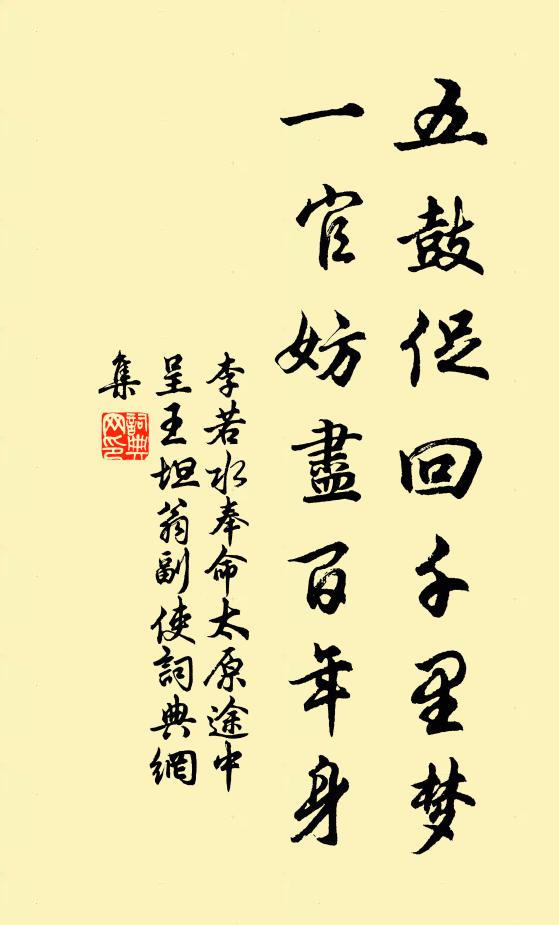 五鼓促回千里梦
一官妨盡百年身
李若水奉命太原途中
呈王坦翁副使詞典網
集
詞典
网印